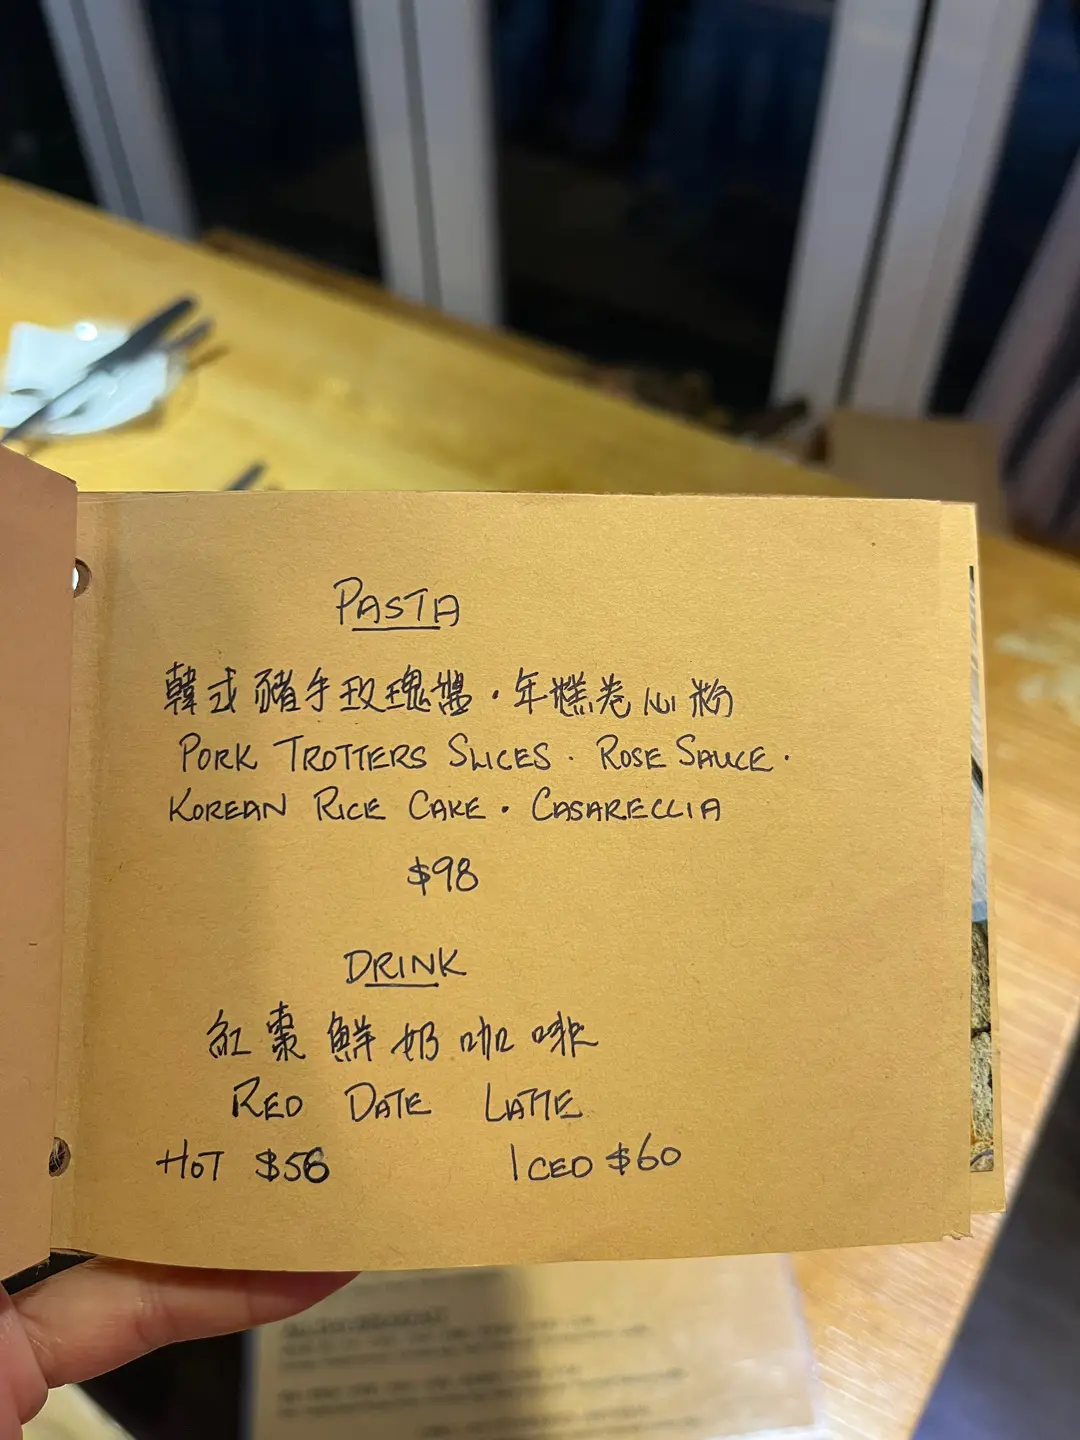 PASTA
韓式豬手玫瑰醬·年糕卷心粉
PORK TROTTERS SLICES · ROSE SAUCE ·
KOREAN RICE CAKE · CASARECCIA
$98
DRINK
紅棗鮮奶咖啡
RED DATE LATTE
HOT $56 ICED $60